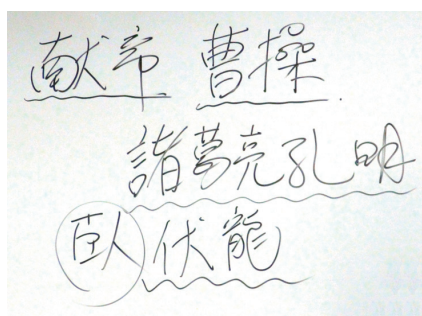 献帝 曹操
諸葛亮孔明
臥伏龍